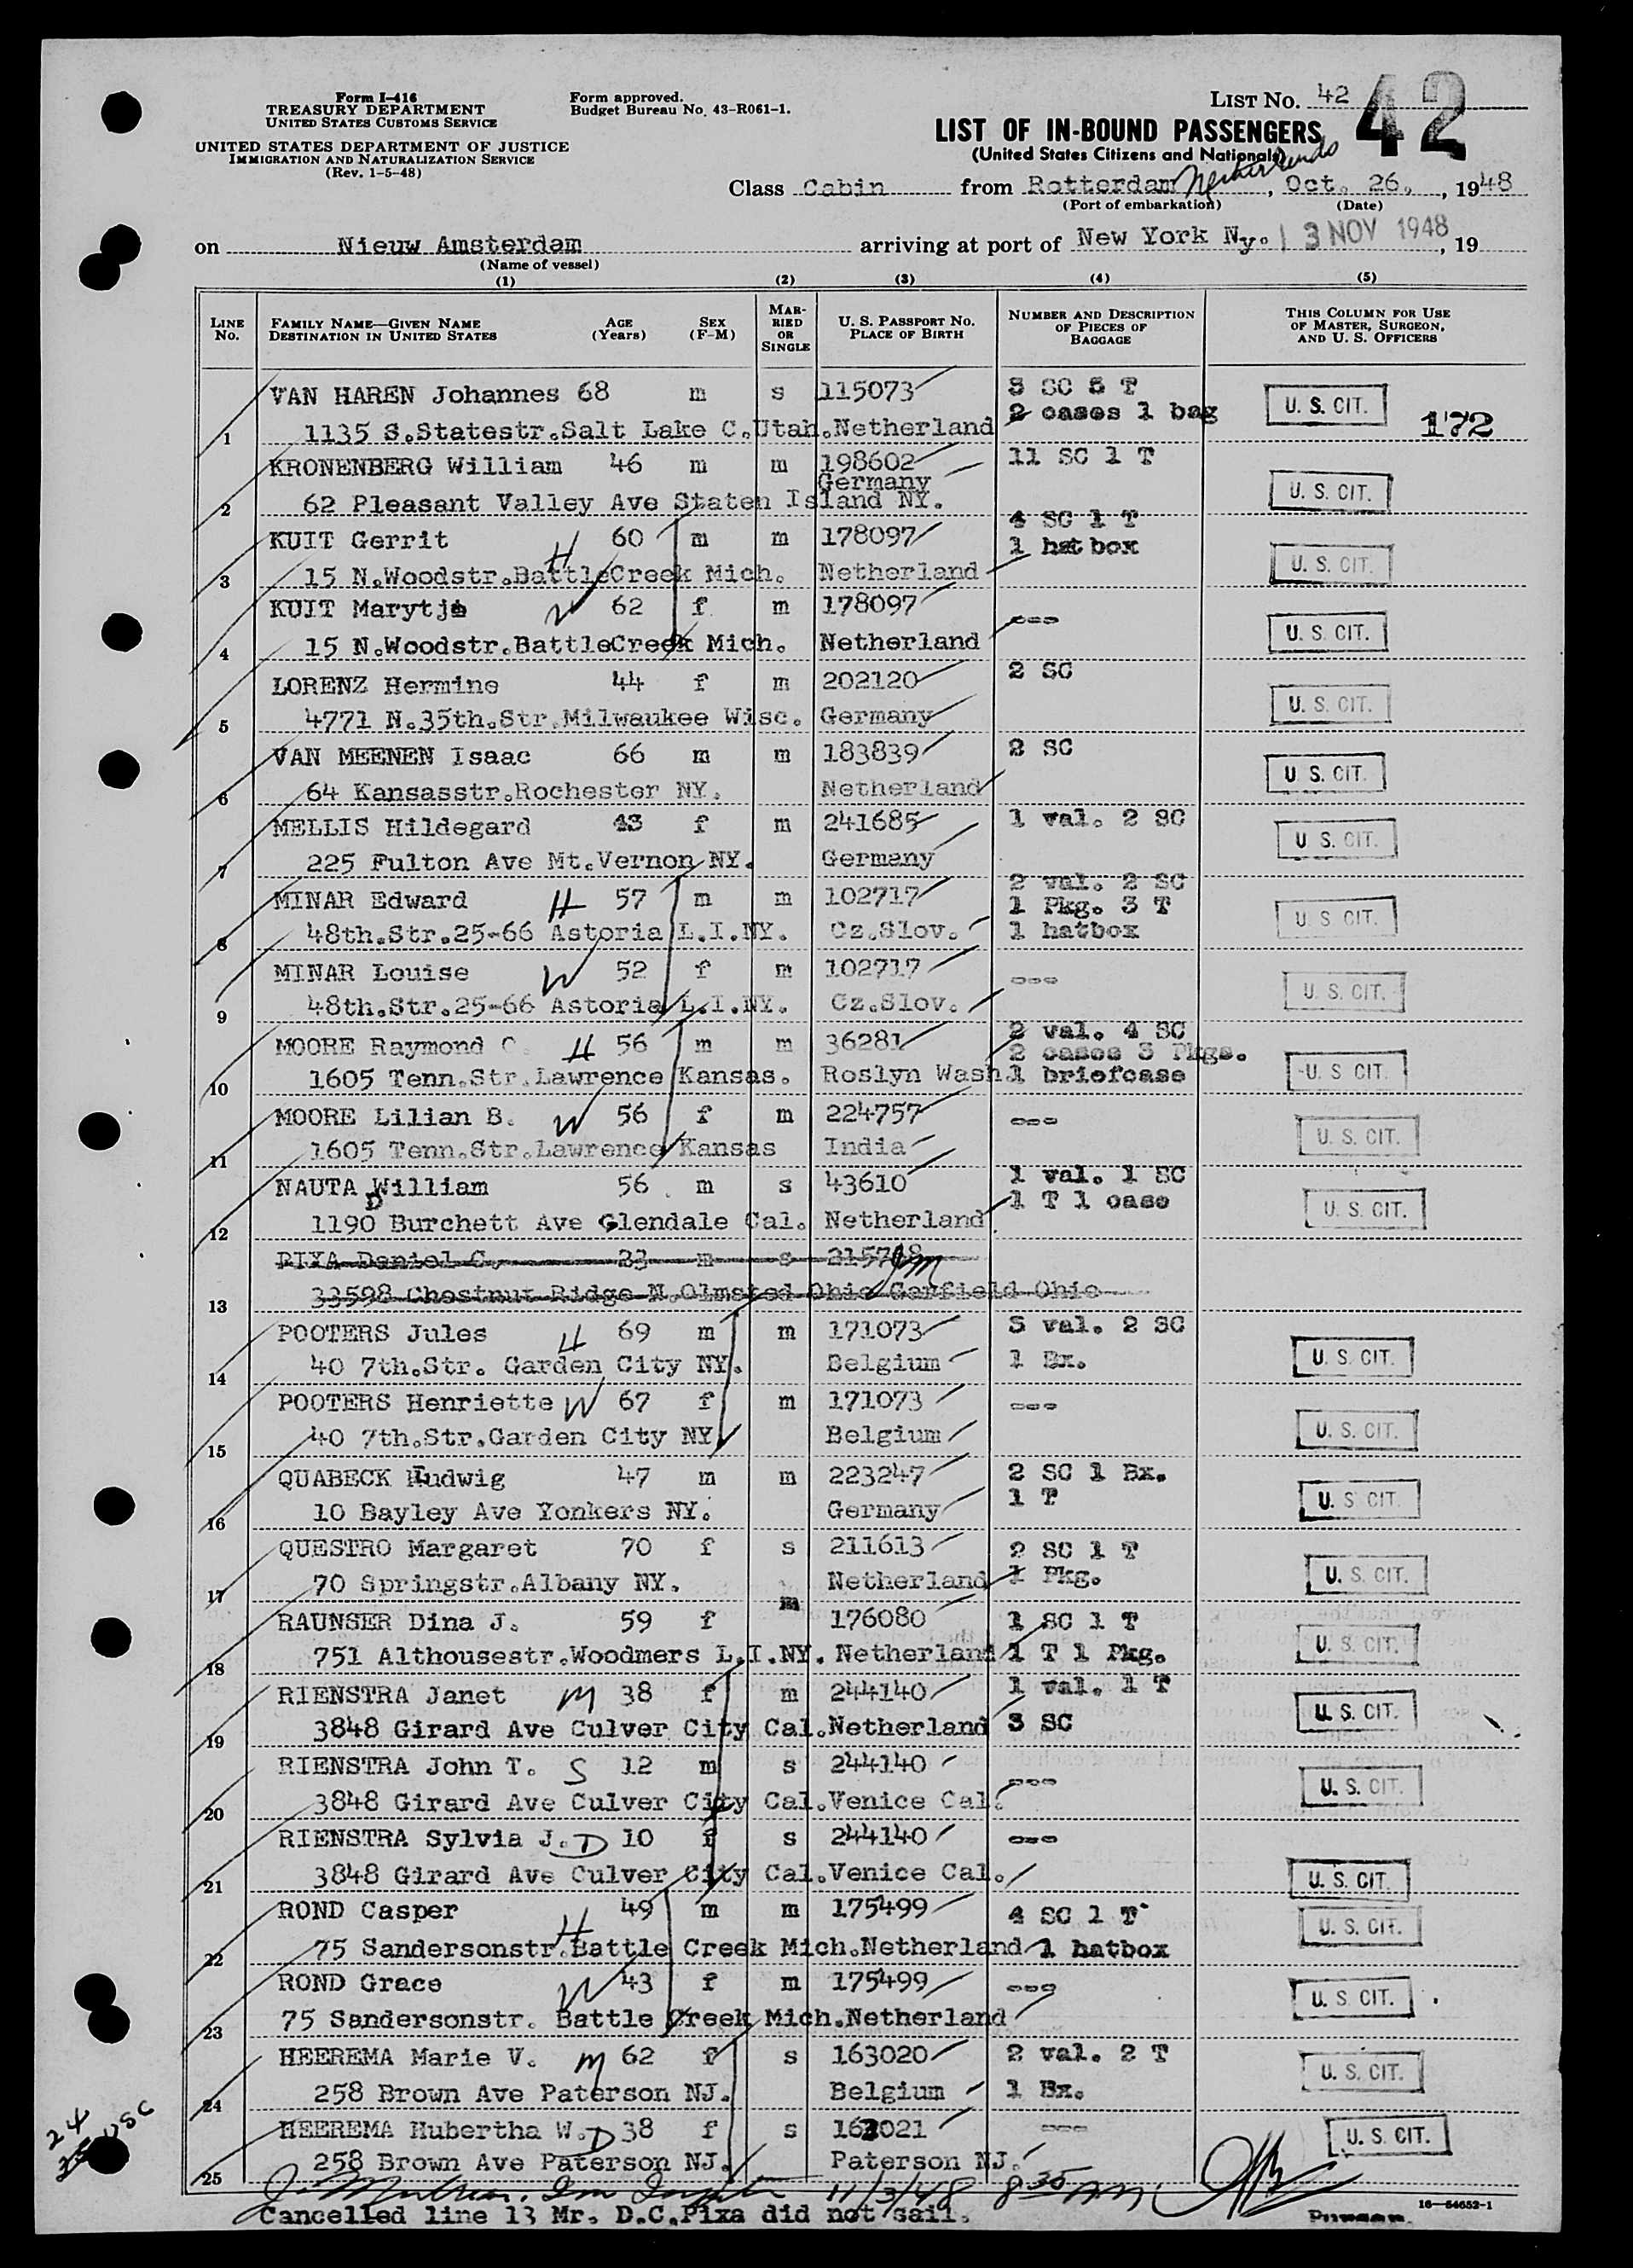 Form I-416
TREASURY DEPARTMENT
UNITED STATES CUSTOMS SERVICE
UNITED STATES DEPARTMENT OF JUSTICE
IMMIGRATION AND NATURALIZATION SERVICE
(Rev. 1-5-48)
Form approved.
Budget Bureau No. 43-R061-1.
LIST No. 42
42
LIST OF IN-BOUND PASSENGERS
(United States Citizens and Nationals)
Class Cabin from Rotterdam Netherlands, Oct. 26, , 1948
(Port of embarkation) (Date)
on Nieuw Amsterdam arriving at port of New York Ny. 3 NOV 1948, 19
(Name of vessel)
(1) (2) (3) (4) (5)
LINE No. FAMILY NAME—GIVEN NAME DESTINATION IN UNITED STATES AGE (Years) SEX (F-M) MARRIED OR SINGLE U. S. PASSPORT NO. PLACE OF BIRTH NUMBER AND DESCRIPTION OF PIECES OF BAGGAGE THIS COLUMN FOR USE OF MASTER, SURGEON, AND U. S. OFFICERS
VAN HAREN Johannes 68 m s 115073 3 SC 5 T U. S. CIT. 172
1 1135 S.Statestr.Salt Lake C.Utah.Netherland 2 cases 1 bag
KRONENBERG William 46 m m 198602 11 SC 1 T U. S. CIT.
Germany
2 62 Pleasant Valley Ave Staten Island NY.
KUIT Gerrit H 60 m m 178097 4 SC 1 T U. S. CIT.
3 15 N.Woodstr.BattleCreek Mich. Netherland 1 hat box
KUIT Marytje W 62 f m 178097 --- U. S. CIT.
4 15 N.Woodstr.BattleCreek Mich. Netherland
LORENZ Hermine 44 f m 202120 2 SC U. S. CIT.
5 4771 N.35th.Str.Milwaukee Wisc. Germany
VAN MEENEN Isaac 66 m m 183839 2 SC U. S. CIT.
6 64 Kansasstr.Rochester NY. Netherland
MELLIS Hildegard 43 f m 241685 1 val. 2 SC U. S. CIT.
7 225 Fulton Ave Mt.Vernon NY. Germany
MINAR Edward H 57 m m 102717 2 val. 2 SC 1 Pkg. 3 T U. S. CIT.
8 48th.Str.25-66 Astoria L.I.NY. Cz.Slov. 1 hatbox
MINAR Louise W 52 f m 102717 --- U. S. CIT.
9 48th.Str.25-66 Astoria L.I.NY. Cz.Slov.
MOORE Raymond C. H 56 m m 36281 2 val. 4 SC 2 cases 3 Pkgs. U. S. CIT.
10 1605 Tenn.Str.Lawrence Kansas. Roslyn Wash. 1 briefcase
MOORE Lilian B. W 56 f m 224757 --- U. S. CIT.
11 1605 Tenn.Str.Lawrence Kansas India
NAUTA William D 56 m s 43610 1 val. 1 SC U. S. CIT.
12 1190 Burchett Ave Glendale Cal. Netherland 1 T 1 case
PIXA Daniel C. 23 m s
13 33598 Chestnut Ridge N.Olmsted Ohio Garfield Ohio
POOTERS Jules H 69 m m 171073 5 val. 2 SC U. S. CIT.
14 40 7th.Str. Garden City NY. Belgium 1 Bx.
POOTERS Henriette W 67 f m 171073 --- U. S. CIT.
15 40 7th.Str.Garden City NY Belgium
QUABECK Ludwig 47 m m 223247 2 SC 1 Bx. U. S. CIT.
16 10 Bayley Ave Yonkers NY. Germany 1 T
QUESTRO Margaret 70 f s 211613 2 SC 1 T U. S. CIT.
17 70 Springstr.Albany NY. Netherland 1 Pkg.
RAUNSER Dina J. 59 f m 176080 1 SC 1 T U. S. CIT.
18 751 Althousestr.Woodmers L.I.NY. Netherland 1 T 1 Pkg.
RIENSTRA Janet M 38 f m 244140 1 val. 1 T U. S. CIT.
19 3848 Girard Ave Culver City Cal.Netherland 3 SC
RIENSTRA John T. S 12 m s 244140 --- U. S. CIT.
20 3848 Girard Ave Culver City Cal.Venice Cal.
RIENSTRA Sylvia J. D 10 f s 244140 --- U. S. CIT.
21 3848 Girard Ave Culver City Cal.Venice Cal.
ROND Casper H 49 m m 175499 4 SC 1 T U. S. CIT.
22 75 Sandersonstr.Battle Creek Mich.Netherland 1 hatbox
ROND Grace W 43 f m 175499 --- U. S. CIT.
23 75 Sandersonstr. Battle Creek Mich.Netherland
HEEREMA Marie V. M 62 f s 163020 2 val. 2 T U. S. CIT.
24 258 Brown Ave Paterson NJ. Belgium 1 Bx.
HEEREMA Hubertha W. D 38 f s 163021 --- U. S. CIT.
25 258 Brown Ave Paterson NJ. Paterson NJ.
24 USC
25
11/3/48 8 35 AM
Cancelled line 13 Mr. D.C.Pixa did not sail.
16—54652-1
Purser.